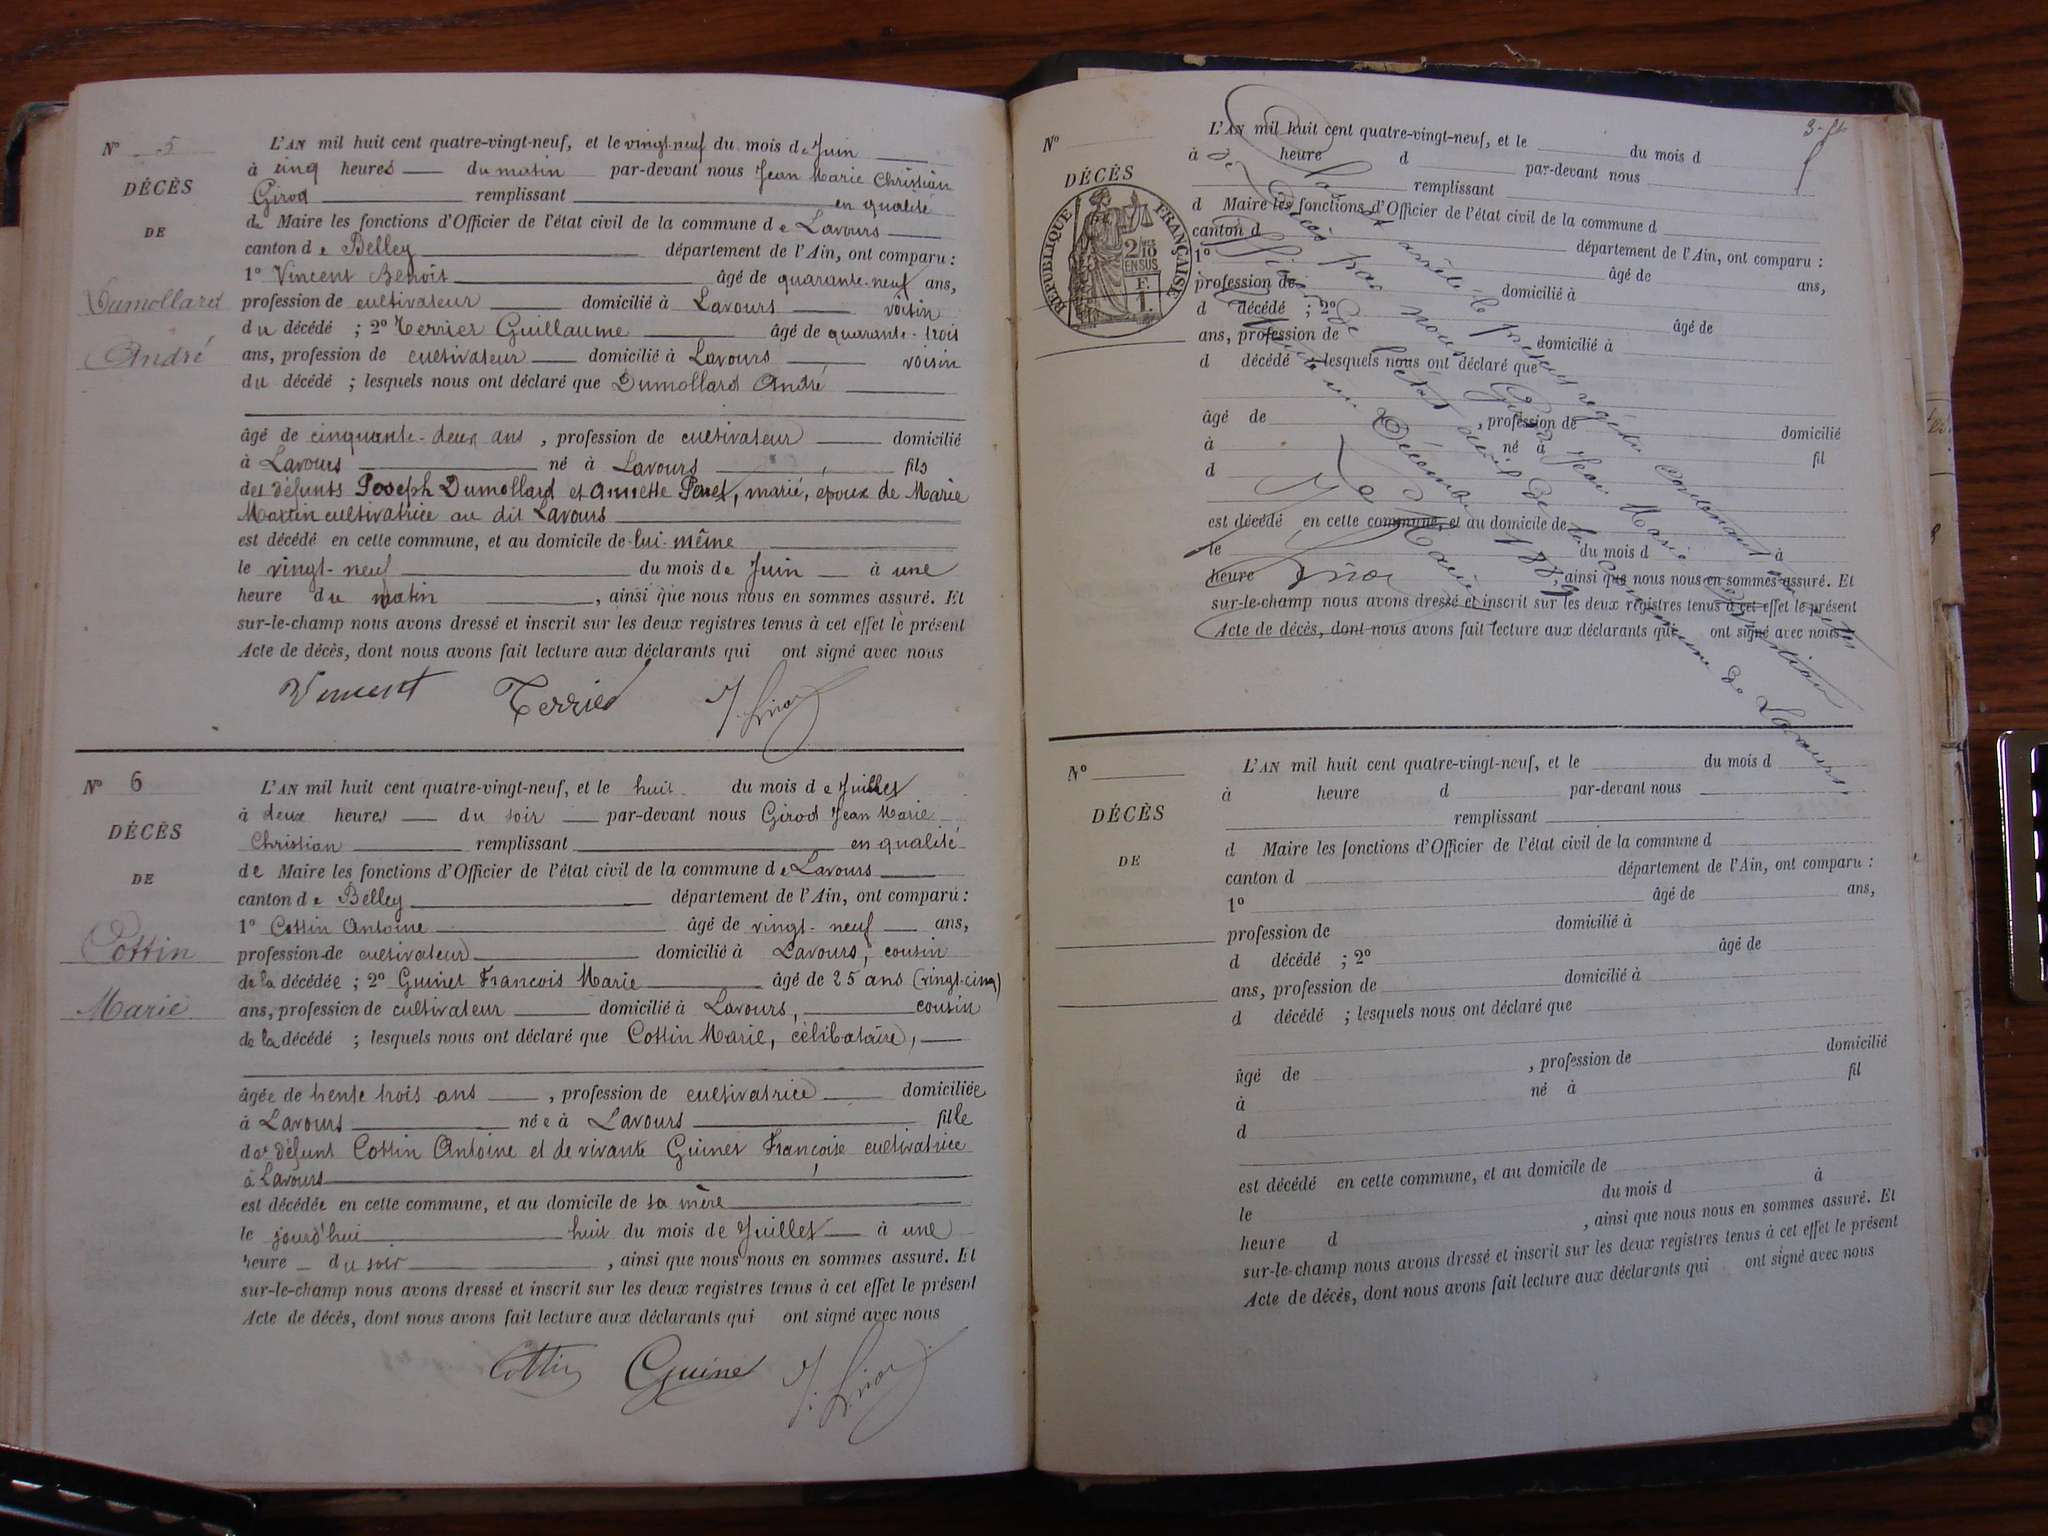 N° 5
DÉCÈS
DE
Dumollard
André
L'AN mil huit cent quatre-vingt-neuf, et le vingt-neuf du mois de Juin
à cinq heures du matin par-devant nous Jean Marie Christian
Girod remplissant en qualité
de Maire les fonctions d'Officier de l'état civil de la commune de Lavours
canton de Belley département de l'Ain, ont comparu :
1° Vincent Benoit âgé de quarante-neuf ans,
profession de cultivateur domicilié à Lavours voisin
du décédé ; 2° Terrier Guillaume âgé de quarante-trois
ans, profession de cultivateur domicilié à Lavours voisin
du décédé ; lesquels nous ont déclaré que Dumollard André
âgé de cinquante-deux ans, profession de cultivateur domicilié
à Lavours né à Lavours fils
des défunts Joseph Dumollard et Annette , marié, époux de Marie
Martin cultivatrice au dit Lavours
est décédé en cette commune, et au domicile de lui-même
le vingt-neuf du mois de Juin à une
heure du matin , ainsi que nous nous en sommes assuré. Et
sur-le-champ nous avons dressé et inscrit sur les deux registres tenus à cet effet le présent
Acte de décès, dont nous avons fait lecture aux déclarants qui ont signé avec nous
Vincent Terrier J. Girod
N° 6
DÉCÈS
DE
Cottin
Marie
L'AN mil huit cent quatre-vingt-neuf, et le huit du mois de Juillet
à deux heures du soir par-devant nous Girod Jean Marie
Christian remplissant en qualité
de Maire les fonctions d'Officier de l'état civil de la commune de Lavours
canton de Belley département de l'Ain, ont comparu :
1° Cottin Antoine âgé de vingt-neuf ans,
profession de cultivateur domicilié à Lavours, cousin
de la décédée ; 2° Guinet Francois Marie âgé de 25 ans (vingt-cinq)
ans, profession de cultivateur domicilié à Lavours, cousin
de la décédé ; lesquels nous ont déclaré que Cottin Marie, célibataire,
âgée de trente trois ans , profession de cultivatrice domiciliée
à Lavours née à Lavours fille
de défunt Cottin Antoine et de vivante Guinet Françoise cultivatrice
à Lavours
est décédée en cette commune, et au domicile de sa mère
le jourd'hui huit du mois de Juillet à une
heure du soir , ainsi que nous nous en sommes assuré. Et
sur-le-champ nous avons dressé et inscrit sur les deux registres tenus à cet effet le présent
Acte de décès, dont nous avons fait lecture aux déclarants qui ont signé avec nous
Cottin Guinet J. Girod
N°
DÉCÈS
RÉPUBLIQUE FRANÇAISE
2/10
EN SUS
F.
1.
L'AN mil huit cent quatre-vingt-neuf, et le du mois d
à heure d par-devant nous
remplissant
d Maire les fonctions d'Officier de l'état civil de la commune d
canton d département de l'Ain, ont comparu :
1° âgé de ans,
profession de domicilié à
d décédé ; 2° âgé de
ans, profession de domicilié à
d décédé lesquels nous ont déclaré que
âgé de , profession de domicilié
à né à fil
d
est décédé en cette commune, et au domicile de
le du mois d à
heure d , ainsi que nous nous en sommes assuré. Et
sur-le-champ nous avons dressé et inscrit sur les deux registres tenus à cet effet le présent
Acte de décès, dont nous avons fait lecture aux déclarants qui ont signé avec nous
Clos et arrêté le présent registre contenant
de Décès par nous Girod Jean Marie Christian
Officier de l'état civil de la Commune de Lavours
Décembre 1889
Le Maire
J. Girod
N°
DÉCÈS
DE
L'AN mil huit cent quatre-vingt-neuf, et le du mois d
à heure d par-devant nous
remplissant
d Maire les fonctions d'Officier de l'état civil de la commune d
canton d département de l'Ain, ont comparu :
1° âgé de ans,
profession de domicilié à
d décédé ; 2° âgé de
ans, profession de domicilié à
d décédé ; lesquels nous ont déclaré que
âgé de , profession de domicilié
à né à fil
d
est décédé en cette commune, et au domicile de
le du mois d à
heure d , ainsi que nous nous en sommes assuré. Et
sur-le-champ nous avons dressé et inscrit sur les deux registres tenus à cet effet le présent
Acte de décès, dont nous avons fait lecture aux déclarants qui ont signé avec nous